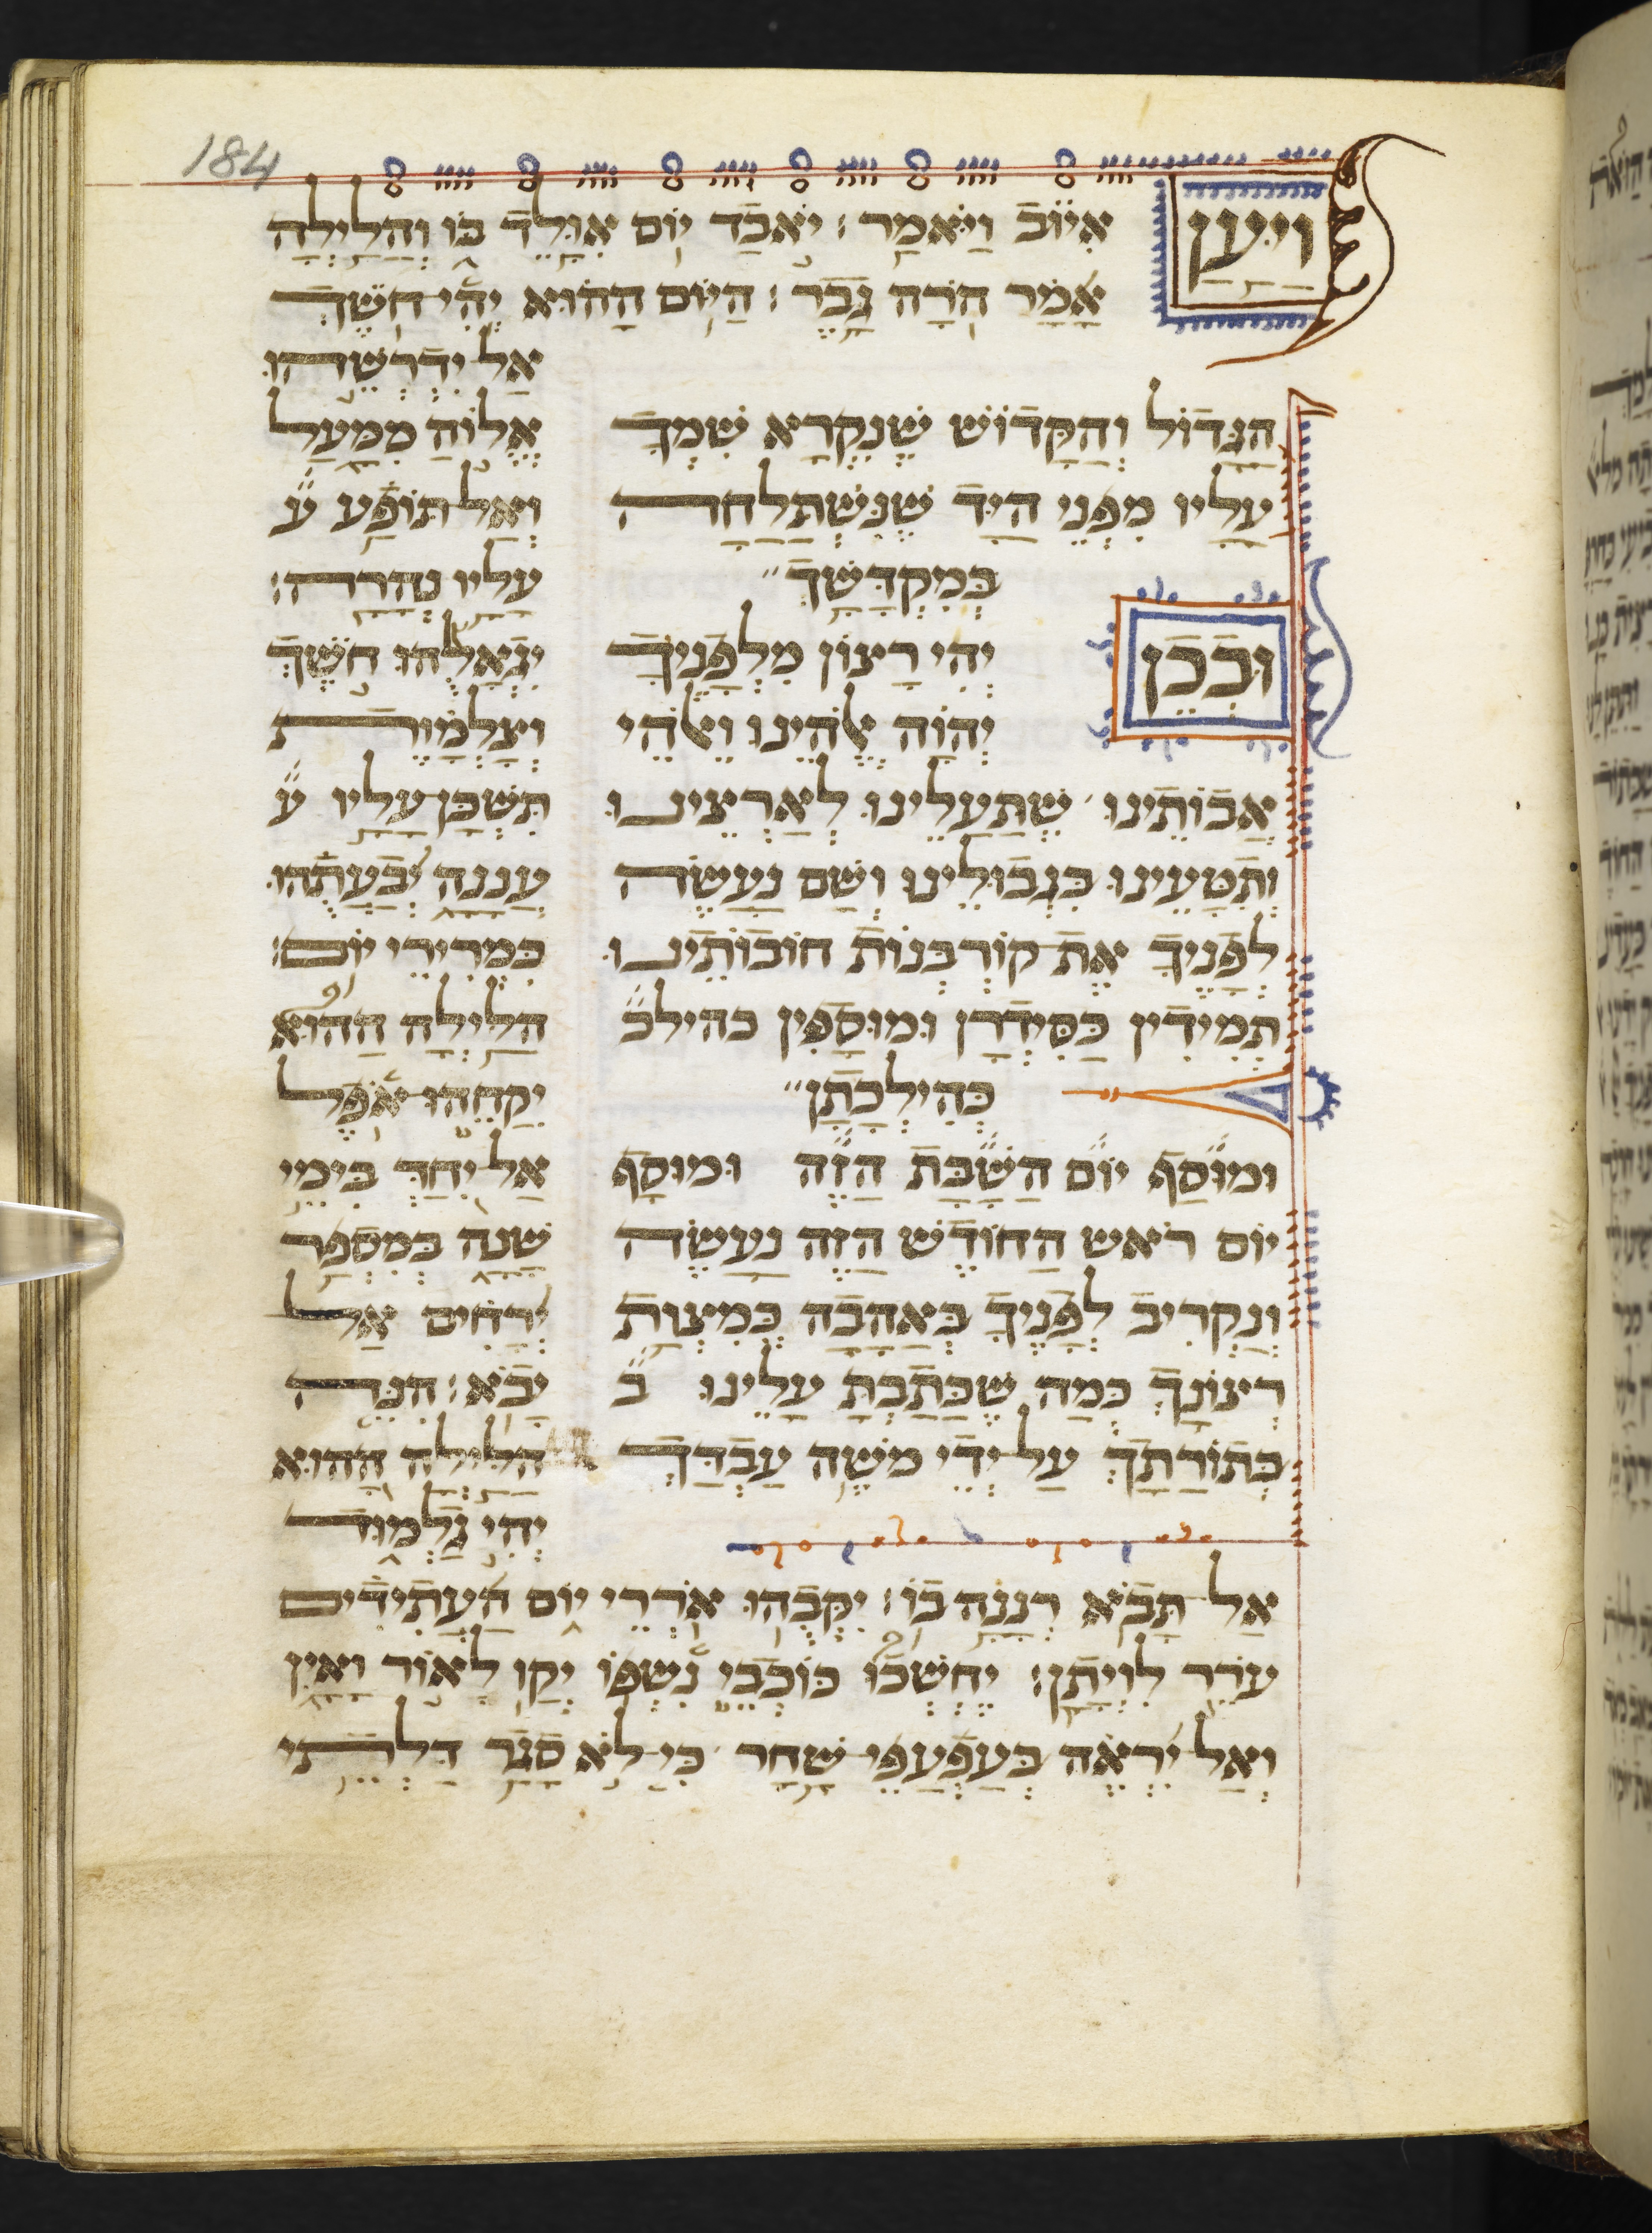 184
וַיַּעַן אִיּוֹב וַיֹּאמַר׃ יֹאבַד יוֹם אִוָּלֶד בּוֹ וְהַלַּיְלָה
אָמַר הֹרָה גָבֶר׃ הַיּוֹם הַהוּא יְהִי חֹשֶׁךְ
הַגָּדוֹל וְהַקָּדוֹשׁ שֶׁנִּקְרָא שִׁמְךָ
עָלָיו מִפְּנֵי הַיָּד שֶׁנִּשְׁתַּלְחָה
בְּמִקְדָּשֶׁךָ
וּבְכֵן יְהִי רָצוֹן מִלְּפָנֶיךָ
יְהוָֹה אֱלֹהֵינוּ וֵאלֹהֵי
אֲבוֹתֵינוּ שֶׁתַּעֲלֵינוּ לְאַרְצֵינוּ
וְתִטָּעֵינוּ בִּגְבוּלֵינוּ וְשָׁם נַעֲשֶׂה
לְפָנֶיךָ אֶת קוֹרְבְּנוֹת חוֹבוֹתֵינוּ
תְמִידִין כַּסִּידְרָן וּמוּסָפִין כהילכ
כְּהִילְכָתָן
וּמוּסַף יוֹם הַשַּׁבָּת הַזֶּה וּמוּסַף
יוֹם רֹאשׁ הַחוֹדֶשׁ הַזֶּה נַעֲשֶׂה
וְנַקְרִיב לְפָנֶיךָ בְּאַהֲבָה כְּמִצְוַת
רְצוֹנָךְ כְּמָה שֶׁכָּתַבְתָּ עָלֵינוּ ב
בְּתוֹרָתָךְ עַל יְדֵי מֹשֶׁה עַבְדָּךְ
אַל יִדְרְשֵׁהוּ
אֱלוֹהַּ מִמַּעַל
וְאַל תּוֹפַע ע
עָלָיו נְהָרָה׃
יִגְאָלֻהוּ חֹשֶׁךְ
וְצַלְמָוֶת
תִּשְׁכָּן עָלָיו ע
עֲנָנָה יְבַעֲתֻהוּ
כִּמְרִירֵי יוֹם׃
הַלַּיְלָה הַהוּא
יִקָּחֵהוּ אֹפֶל
אַל יִחַדְּ בִּימֵי
שָׁנָה בְּמִסְפַּר
יְרָחִים אַל
יָבֹא׃ הִנֵּה
הַלַּיְלָה הַהוּא
יְהִי גַלְמוּד
אַל תָּבֹא רְנָנָה בוֹ׃ יִקְּבֻהוּ אֹרְרֵי יוֹם הָעֲתִידִים
עֹרֵר לִוְיָתָן׃ יֶחְשְׁכוּ כּוֹכְבֵי נִשְׁפּוֹ יְקַו לְאוֹר וָאַיִן
וְאַל יִרְאֶה בְּעַפְעַפֵּי שָׁחַר כִּי לֹא סָגַר דַּלְתֵי